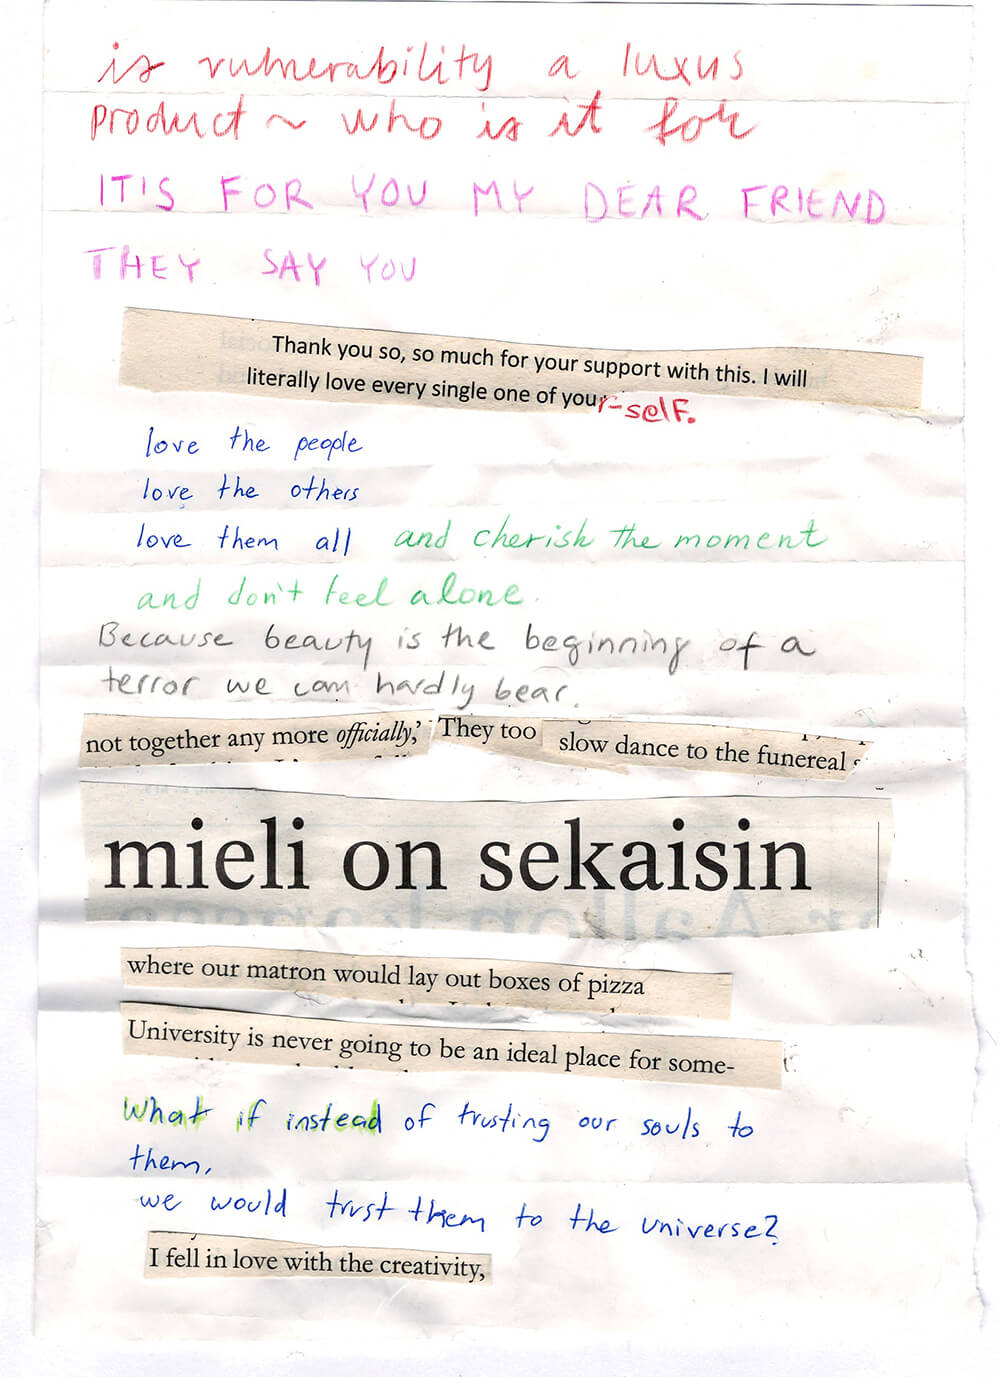 is vulnerability a luxus
product ~ who is it for
IT'S FOR YOU MY DEAR FRIEND
THEY SAY YOU
Thank you so, so much for your support with this. I will
literally love every single one of your-self.
love the people
love the others
love them all and cherish the moment
and don't feel alone.
Because beauty is the beginning of a
terror we can hardly bear.
not together any more officially,' They too slow dance to the funereal
mieli on sekaisin
where our matron would lay out boxes of pizza
University is never going to be an ideal place for some-
What if instead of trusting our souls to
them,
we would trust them to the universe?
I fell in love with the creativity,